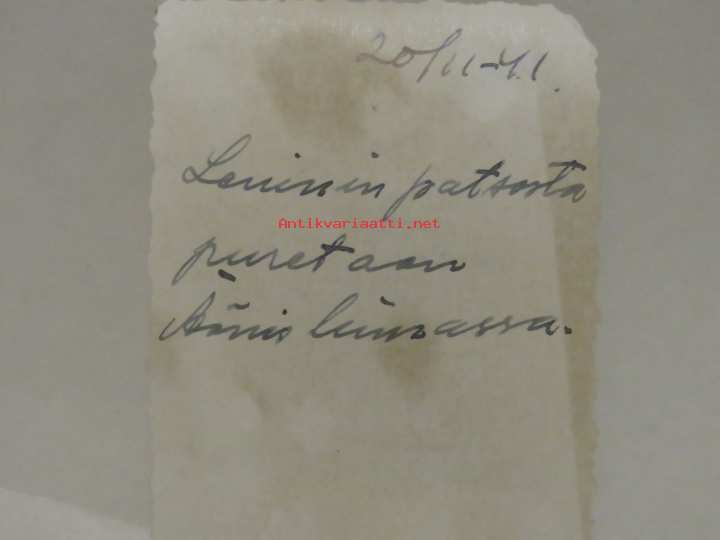 20/11-41.
Leninin patsasta
Antikvariaatti.net
puretaan
Äänislinnassa.